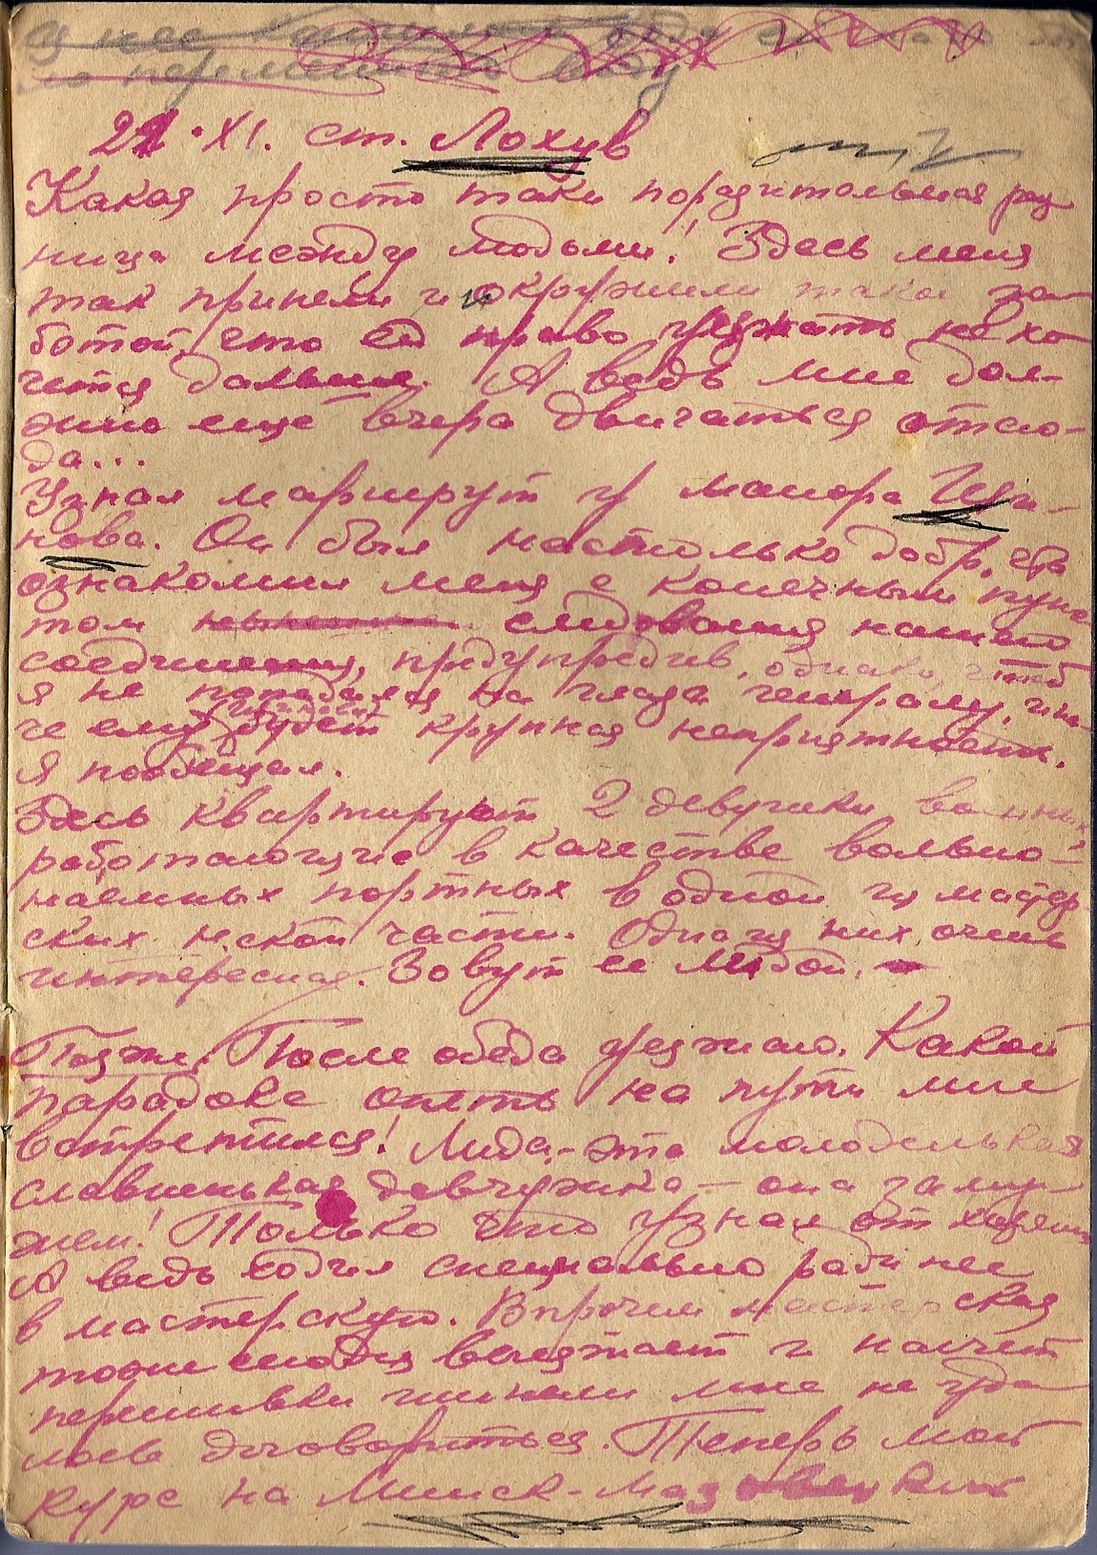 по переменной воду
21.XI. ст. Лохув
Какая просто таки поразительная раз
ница между людьми! Здесь меня
так приняли и окружили такой за
ботой, что ей право уезжать не хо
чется дальше. А ведь мне дол-
жно ещё вчера двигаться отсю-
да...
Узнал маршрут у майора
нова. Он был настолько добр, что
ознакомил меня с конечным пунк
том следования нашего
соединения, предупредив, однако, чтоб
я не попадался на глаза генералу, ина
че ему будет крупная неприятность.
Я пообещал.
Здесь квартируют 2 девушки
работающие в качестве вольно-
наемных портных в одной из мастер
ских н-ской части. Одна из них очень
интересная. Зовут ее Лидой.
Позже. После обеда уезжаю. Какой
парадокс опять на пути мне
встретился! Лида,- эта молоденькая
славненькая девчужка - она заму-
жем! Только что узнал от хозяйки
А ведь ходил специально ради нее
в мастерскую. Впрочем мастерская
тоже сюда выезжает и насчет
перешивки шинели мне не уда
лось договориться. Теперь мой
курс на Минск-Мазовецкий